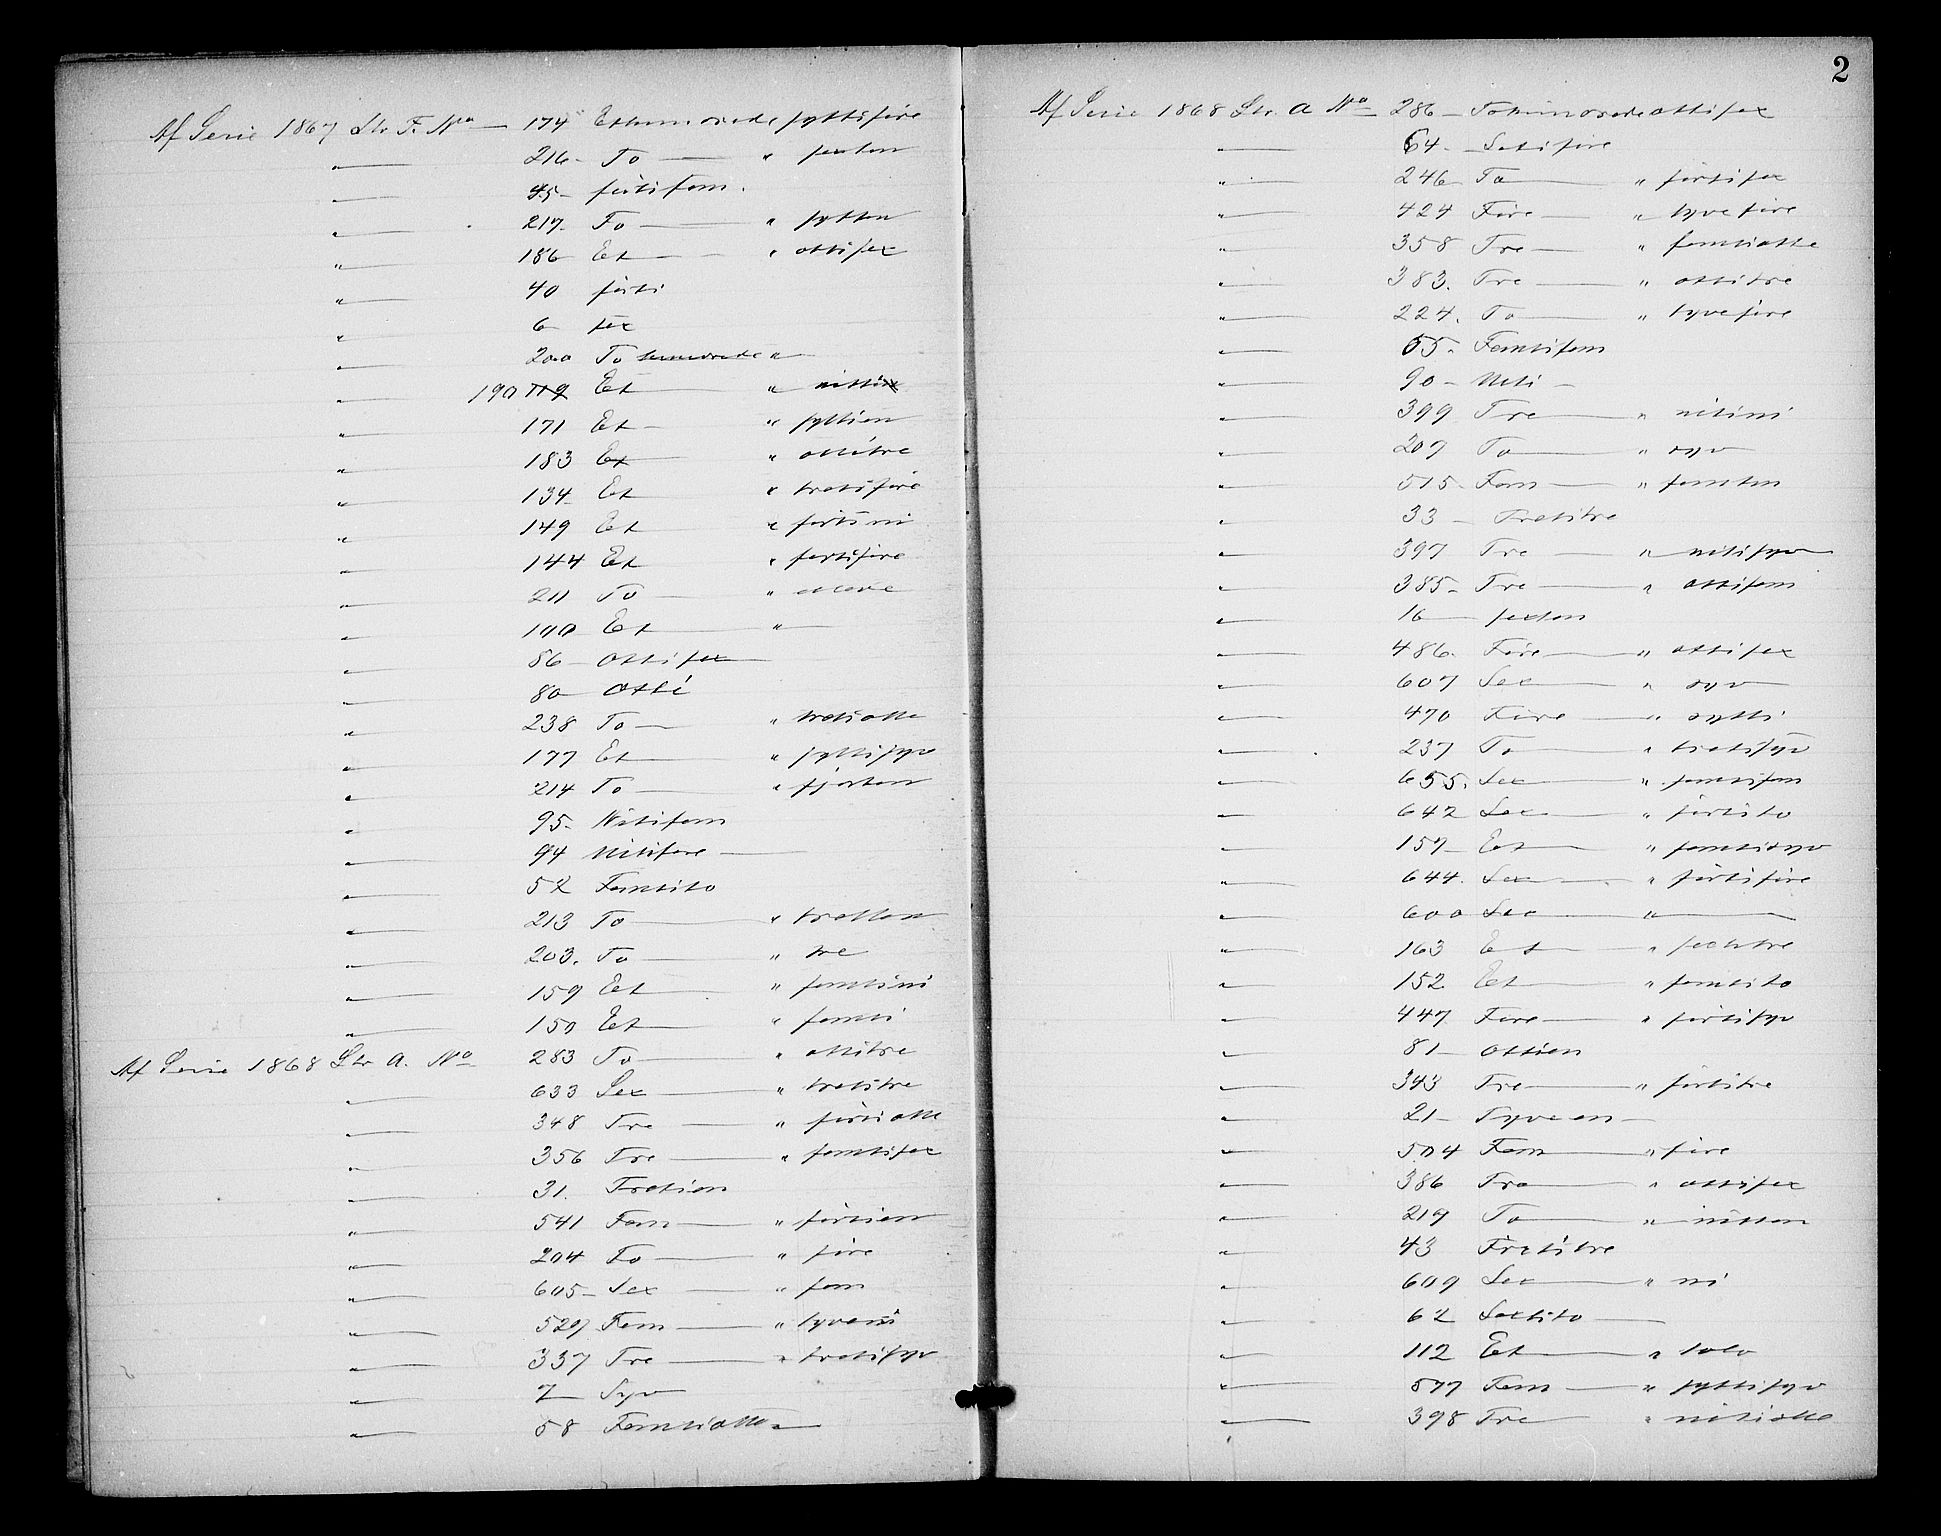 Af Serie 1867 Ltr. F. No — 174 Ethundrede syttifire
" — 216 - To — " sexten
" — 45 - førtifem.
" — 217. To — " sytten
" — 186 Et — " ottisex
" — 40 førti
" — 6 sex
" — 200 To hundrede "
" — 190 Et — " nitti
" — 171 Et - " syttien
" — 183 Et " ottitre
" — 134 Et " tretifire
" — 149 Et " førtini
" — 144 Et " førtifire
" — 211 To " elleve
" — 100 Et — "
" — 86 - Ottisex
" — 80 Otti
" — 238 To — " tretiotte
" — 177 Et — " syttisyv
" — 214 To — " fjorten
" 95 - Nitifem
" — 94 Nitifire —
" — 52 Femtito
" — 213 To — " tretten
" — 203. To — " tre
" — 159 Et — " femtini
" — 150 Et — " femti
Af Serie 1868 Ltr A. No 283 To — " ottitre
" — 633 Sex — " tretitre
" — 348 Tre — " førtiotte
" — 356 Tre — " femtisex
" — 31. Tretien
" — 541 Fem — " førtien
" — 204 To — " fire
" — 605 - Sex — " fem
" — 529 Fem — " tyveni
" — 337 Tre — " tretisyv
" — 7 — Syv
" — 58 Femtiotte
2
Af Serie 1868 Ltr. A No 286 - Tohundrede ottisex
" — 64. - Sextifire
" — 246 To — " førtisex
" — 424 Fire — " tyvefire
" — 358 Tre — " femtiotte
" — 383. Tre — " ottitre
" — 224. To — " tyvefire
" — 55 - Femtifem
" — 90 - Niti -
" — 399 Tre — " nitini
" — 207 To — " syv
" — 515 - Fem — " femten
" — 33 - Tretitre
" — 397 Tre — " nitisyv
" — 385 - Tre — " ottifem
" — 16 — sexten
" — 486. Fire — " ottisex
" — 607 Sex — " syv
" — 470 Fire — " sytti
" — 237 To — " tretisyv
" — 655. Sex — " femtifem
" — 642 Sex — " førtito
" — 157 - Et — " femtisyv
" — 644. Sex — " førtifire
" — 600 Sex — " —
" — 163 Et — " sextitre
" — 152 Et — " femtito
" — 447 Fire — " førtisyv
" — 81 - Ottien
" — 343 Tre — " førtitre
" — 21 - Tyveen -
" — 504 Fem — " fire
" — 386 Tre — " ottisex
" — 219 To — " nitten
" — 43 Frotitre
" — 609 Sex — " ni
" — 62 Sextito —
" — 112 Et — " tolv
" — 577 Fem — " syttisyv
" — 398 Tre — " nitiotte